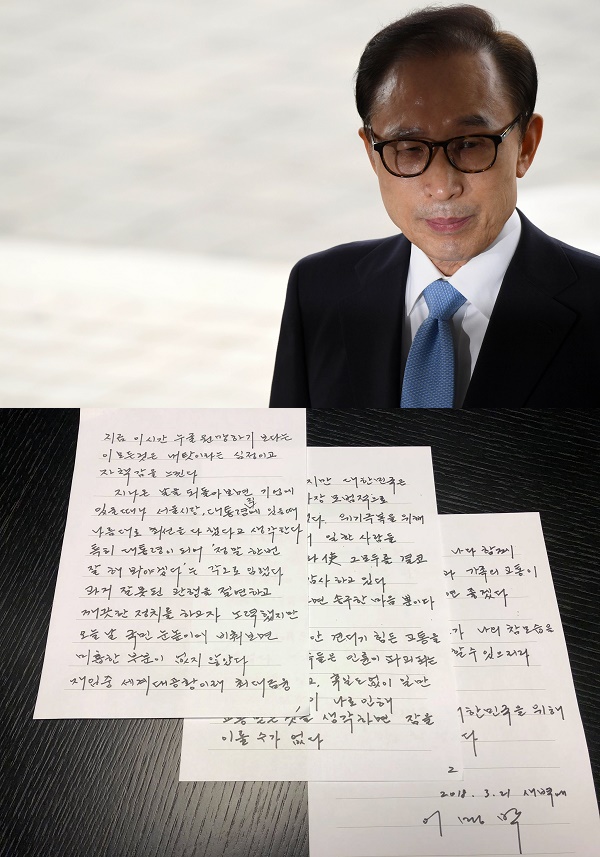 지금 이시간 누굴 원망하기 보다는
이 모든것은 내탓이라는 심정이고
자책감을 느낀다
지나온 날을 되돌아보면, 기업에
있을때나 서울시장, 대통령직에 있을때
나름대로 최선을 다 했다고 생각한다
특히 대통령이 되어 '정말 한번
잘 해 봐야겠다'는 각오로 임했다
과거 잘못된 관행을 절연하고
깨끗한 정치를 하고자 노력했지만
오늘 날 국민 눈높이에 비춰보면
미흡한 부분이 없지 않았다
재임중 세계대공황이래 최대금융
지만 대한민국은
가장 모범적으로
다. 위기극복을 위해
일한 사람들
나 使 그 모두를 결코
감사하고 있다
면 송구한 마음 뿐이다
안 견디기 힘든 고통을
들은 인륜이 파괴되는
고. 휴일도 없이 일만
이 나로 인해
생각하면 잠을
이룰 수가 없다
나라 참회
가족의 고통이
좋겠다
나의 참모습을
할 수 있으리라
대한민국을 위해
다
2018. 3. 21 새벽에
이 명 박